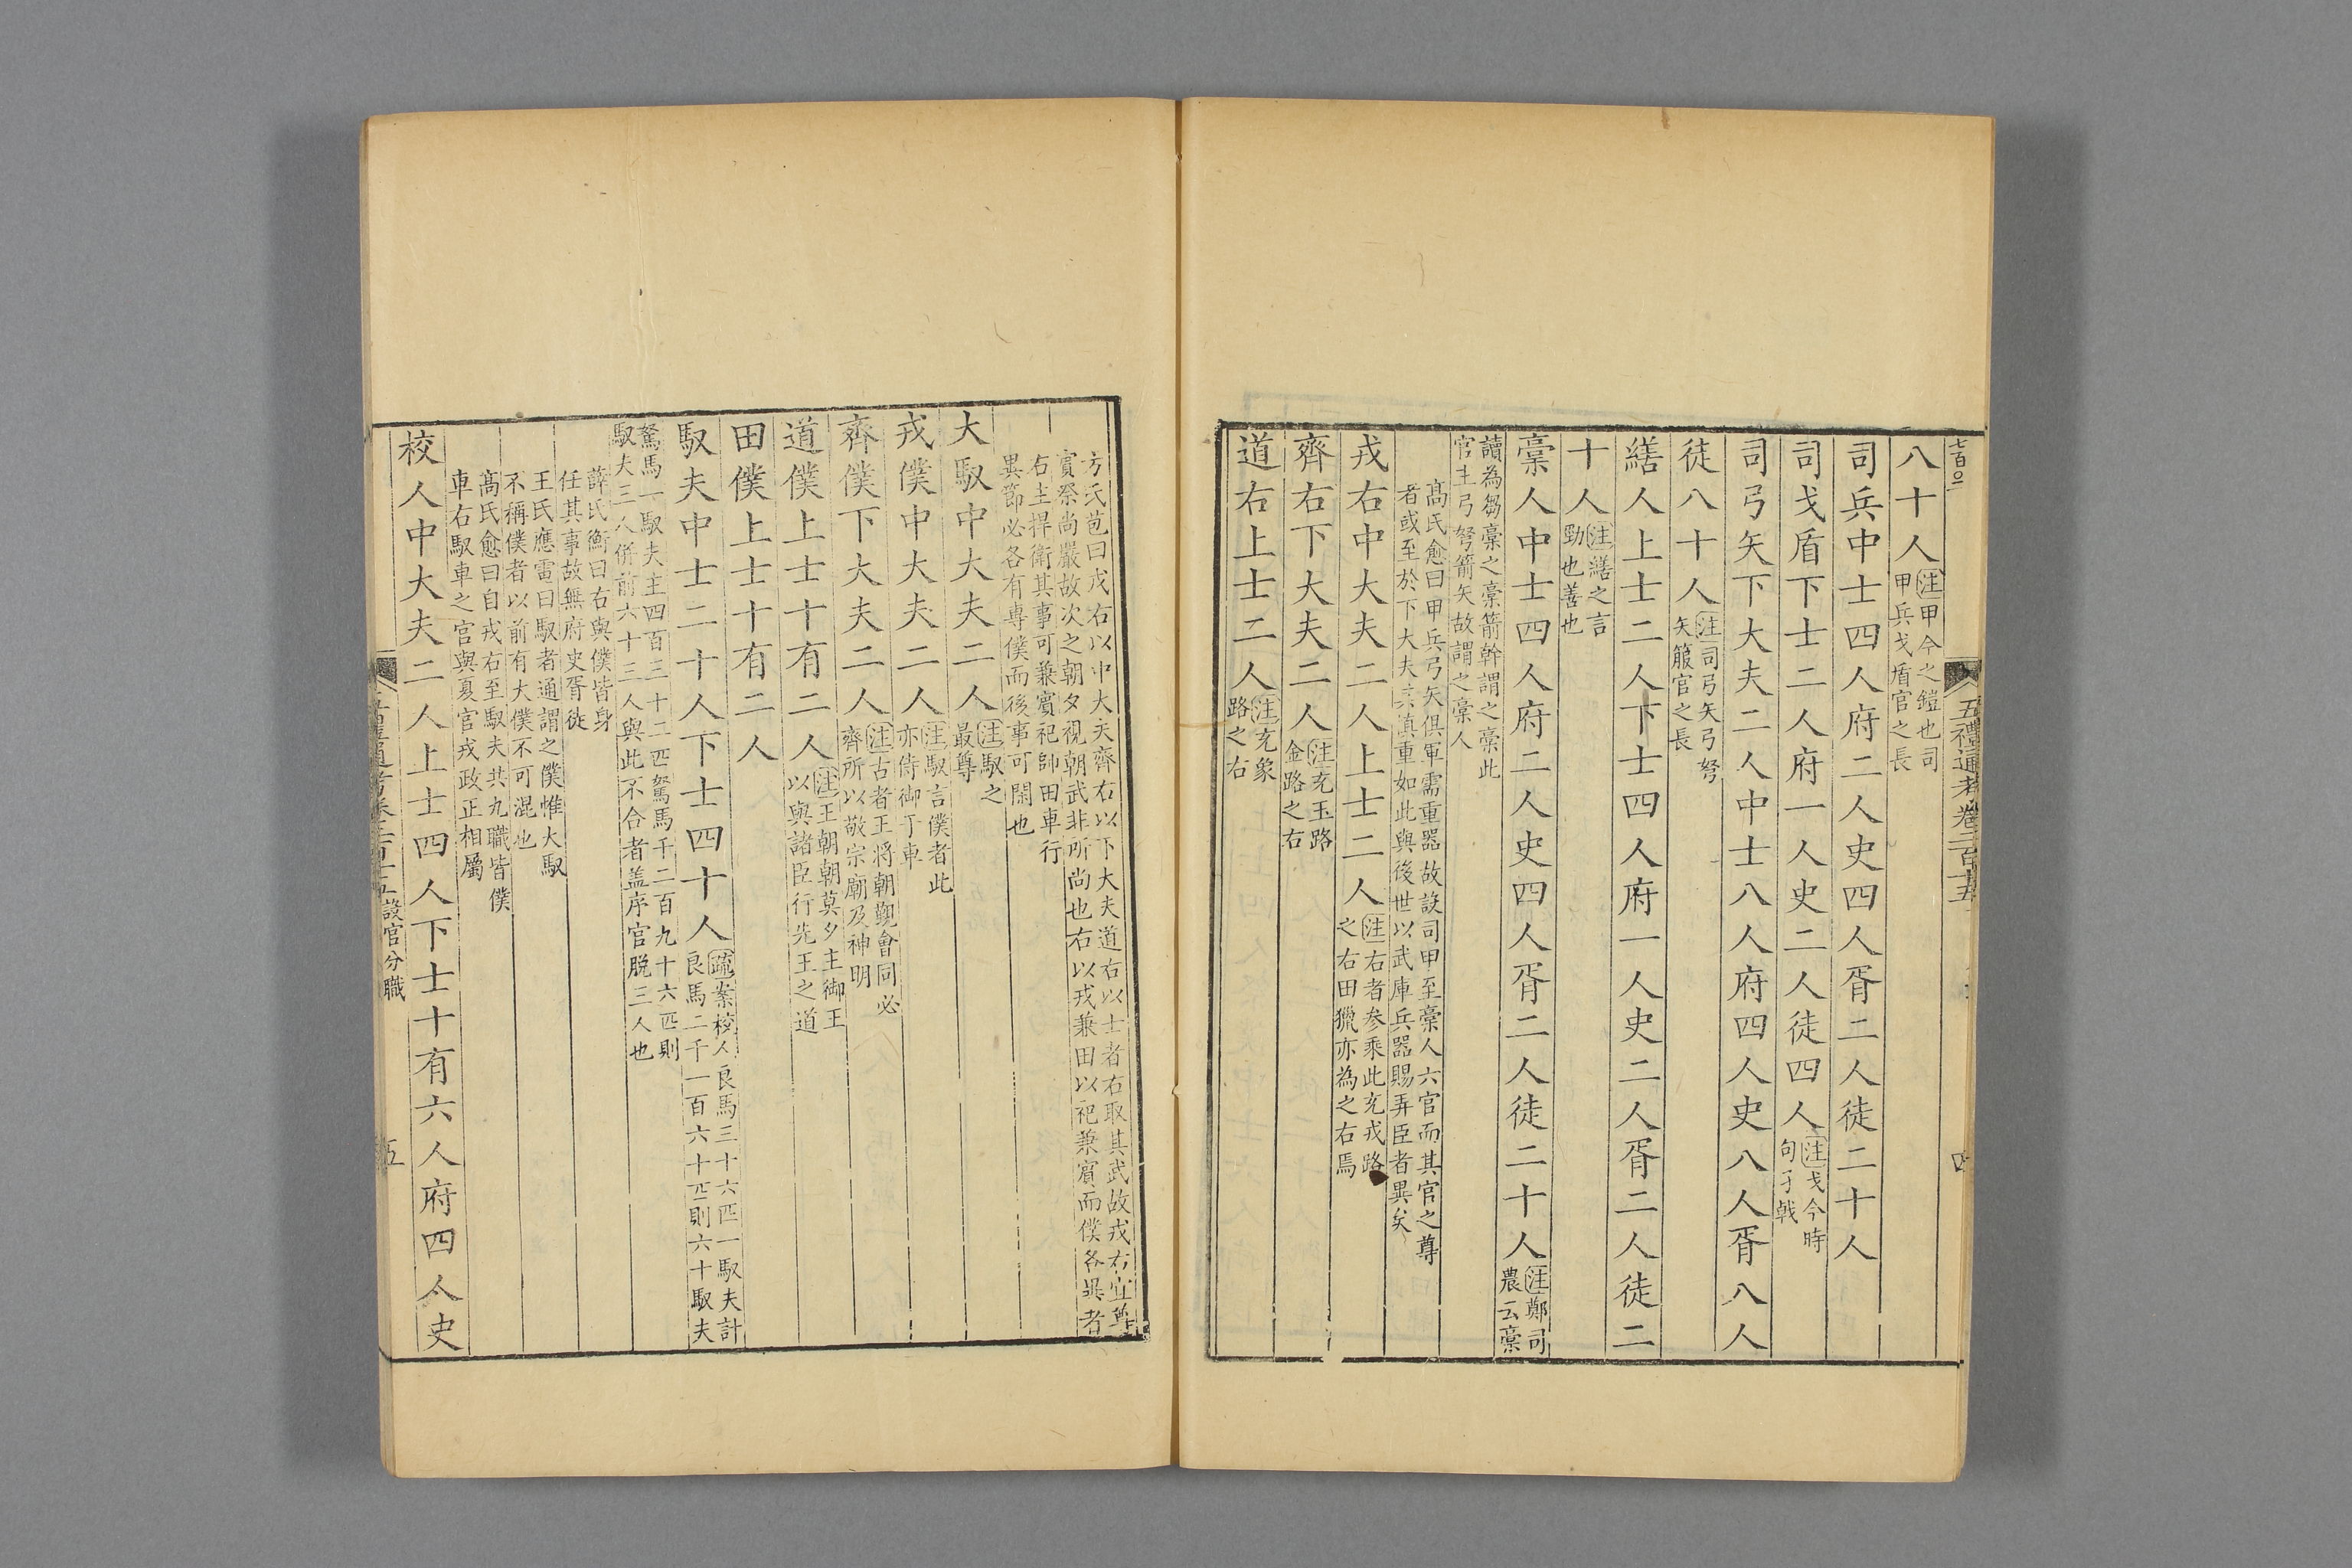 五禮通考卷二百十五
四
八十人注甲今之鎧也司
甲兵戈盾官之長
司兵中士四人府二人史四人胥二人徒二十人
司戈盾下士二人府一人史二人徒四人注戈今時
句孑戟
司弓矢下大夫二人中士八人府四人史八人胥八人
徒八十人注司弓矢弓弩
矢箙官之長
繕人上士二人下士四人府一人史二人胥二人徒二
十人注繕之言
勁也善也
稾人中士四人府二人史四人胥二人徒二十人注鄭司
農云稾
讀為芻稾之稾箭幹謂之稾此
官主弓弩箭矢故謂之稾人
高氏愈曰甲兵弓矢俱軍需重器故設司甲至稾人六官而其官之尊
者或至於下大夫其慎重如此與後世以武庫兵器賜弄臣者異矣
戎右中大夫二人上士二人注右者參乘此充戎路
之右田獵亦為之右焉
齊右下大夫二人注充玉路
金路之右
道右上士二人注充象
路之右
方氏苞曰戎右以中大夫齊右以下大夫道右以士者右取其武故戎右宜尊
賓祭尚嚴故次之朝夕視朝武非所尚也右以戎兼田以祀兼賓而僕各異者
右主捍衛其事可兼賓祀師田車行
異節必各有專僕而後事可閑也
大馭中大夫二人注馭之
最尊
戎僕中大夫二人注馭言僕者此
亦侍御于車
齊僕下大夫二人注古者王將朝覲會同必
齊所以敬宗廟及神明
道僕上士十有二人注王朝朝莫夕主御王
以與諸臣行先王之道
田僕上士十有二人
馭夫中士二十人下士四十人疏案校人良馬三十六匹一馭夫計
良馬二千一百六十匹則六十馭夫
駑馬一馭夫主四百三十二匹駑馬千二百九十六匹則
馭夫三人併前六十三人與此不合者盖序官脫三人也
薛氏衡曰右與僕皆身
任其事故無府史胥徒
王氏應電曰馭者通謂之僕惟大馭
不稱僕者以前有大僕不可混也
高氏愈曰自戎右至馭夫共九職皆僕
車右馭車之官與夏官戎政正相屬
校人中大夫二人上士四人下士十有六人府四人史
設官分職
五